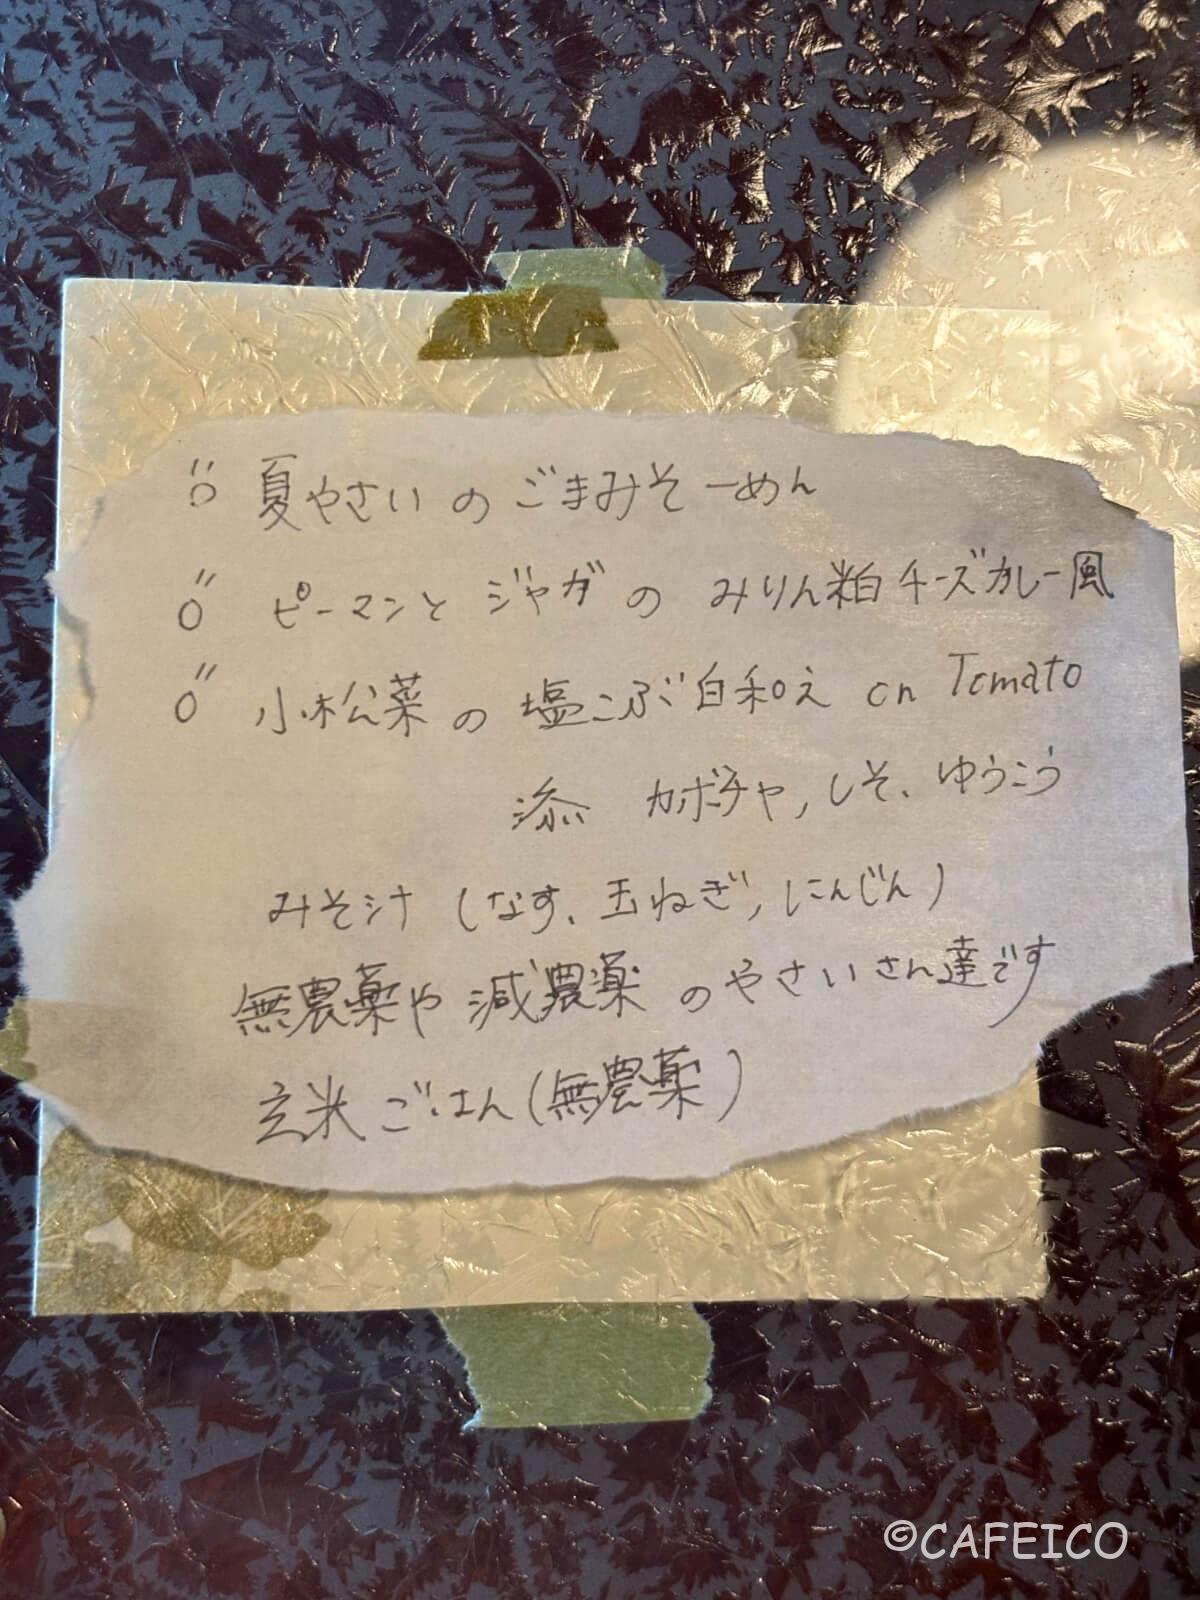 夏やさいの ごまみそーめん
ピーマンと ジャガの みりん粕チーズカレー風
小松菜の 塩こぶ白和え on Tomato
添 カボチャ, しそ、ゆうこう
みそ汁 (なす、玉ねぎ, にんじん)
無農薬や減農薬のやさいさん達です
玄米ごはん(無農薬)
©CAFEICO